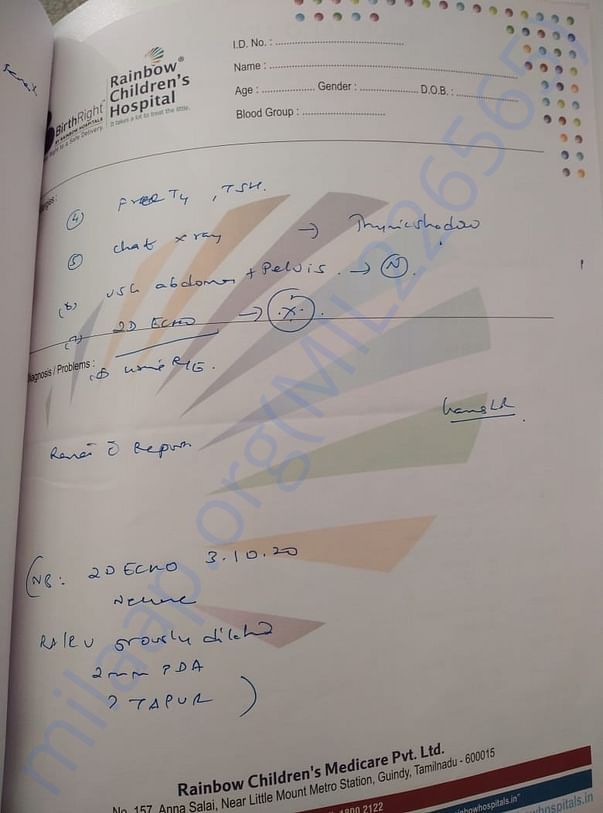 I.D. No. :
Name :
Age : Gender : D.O.B. :
Blood Group :
BirthRight
BY RAINBOW HOSPITALS
Right to a Safe Delivery
Rainbow®
Children's
Hospital
It takes a lot to treat the little.
④ Free T4, TSH.
⑤ chest x ray → Thymic shadow
(6) USG abdomen + Pelvis. → Ⓝ.
(7) 2D ECHO →
Diagnosis / Problems :
urine R/E.
Review c̄ Reports
(NB: 2D ECHO 3.10.20
RA/RV grossly dilated
2mm PDA
? TAPVR )
Rainbow Children's Medicare Pvt. Ltd.
No. 157, Anna Salai, Near Little Mount Metro Station, Guindy, Tamilnadu - 600015
1800 2122
milaap.org(MIL2265655)